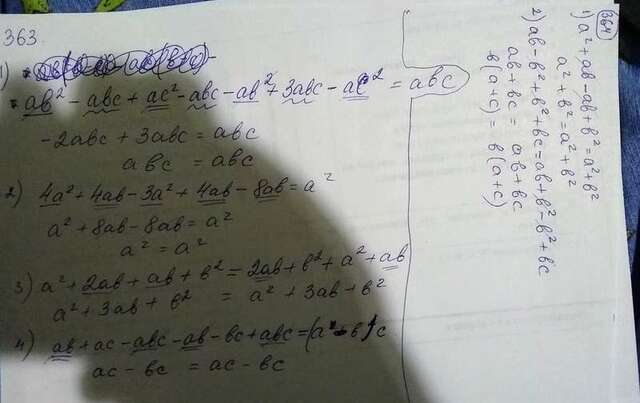 363
1)
ab² - abc + ac² - abc - ab² + 3abc - ac² = abc
-2abc + 3abc = abc
abc = abc
2) 4a² + 4ab - 3a² + 4ab - 8ab = a²
a² + 8ab - 8ab = a²
a² = a²
3) a² + 2ab + ab + b² = 2ab + b² + a² + ab
a² + 3ab + b² = a² + 3ab + b²
4) ab + ac - abc - ab - bc + abc = (a - b)c
ac - bc = ac - bc
364
1) a² + ab - ab + b² = a² + b²
a² + b² = a² + b²
2) ab - b² + b² + bc = ab + b² - b² + bc
ab + bc = ab + bc
b(a+c) = b(a+c)